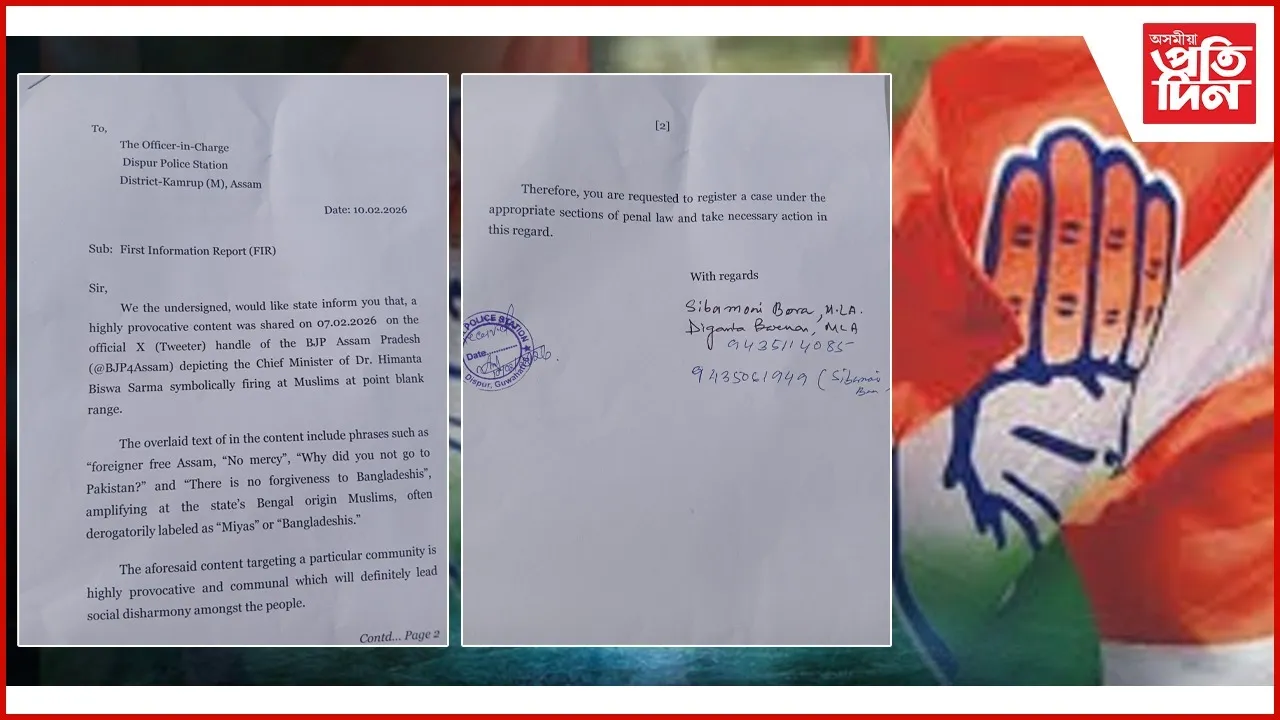 অসমীয়া
প্ৰতি
দিন
To,
The Officer-in-Charge
Dispur Police Station
District-Kamrup (M), Assam
Date: 10.02.2026
Sub: First Information Report (FIR)
Sir,
We the undersigned, would like state inform you that, a
highly provocative content was shared on 07.02.2026 on the
official X (Tweeter) handle of the BJP Assam Pradesh
(@BJP4Assam) depicting the Chief Minister of Dr. Himanta
Biswa Sarma symbolically firing at Muslims at point blank
range.
The overlaid text of in the content include phrases such as
“foreigner free Assam, “No mercy”, “Why did you not go to
Pakistan?” and “There is no forgiveness to Bangladeshis”,
amplifying at the state’s Bengal origin Muslims, often
derogatorily labeled as “Miyas” or “Bangladeshis.”
The aforesaid content targeting a particular community is
highly provocative and communal which will definitely lead
social disharmony amongst the people.
Contd... Page 2
[2]
Therefore, you are requested to register a case under the
appropriate sections of penal law and take necessary action in
this regard.
With regards
Sibamoni Bora, M.LA.
Diganta Barman, MLA
9435114085
9435061949 (Sibamoni
Bora
POLICE STATION
Received
Date
Dispur, Guwahati